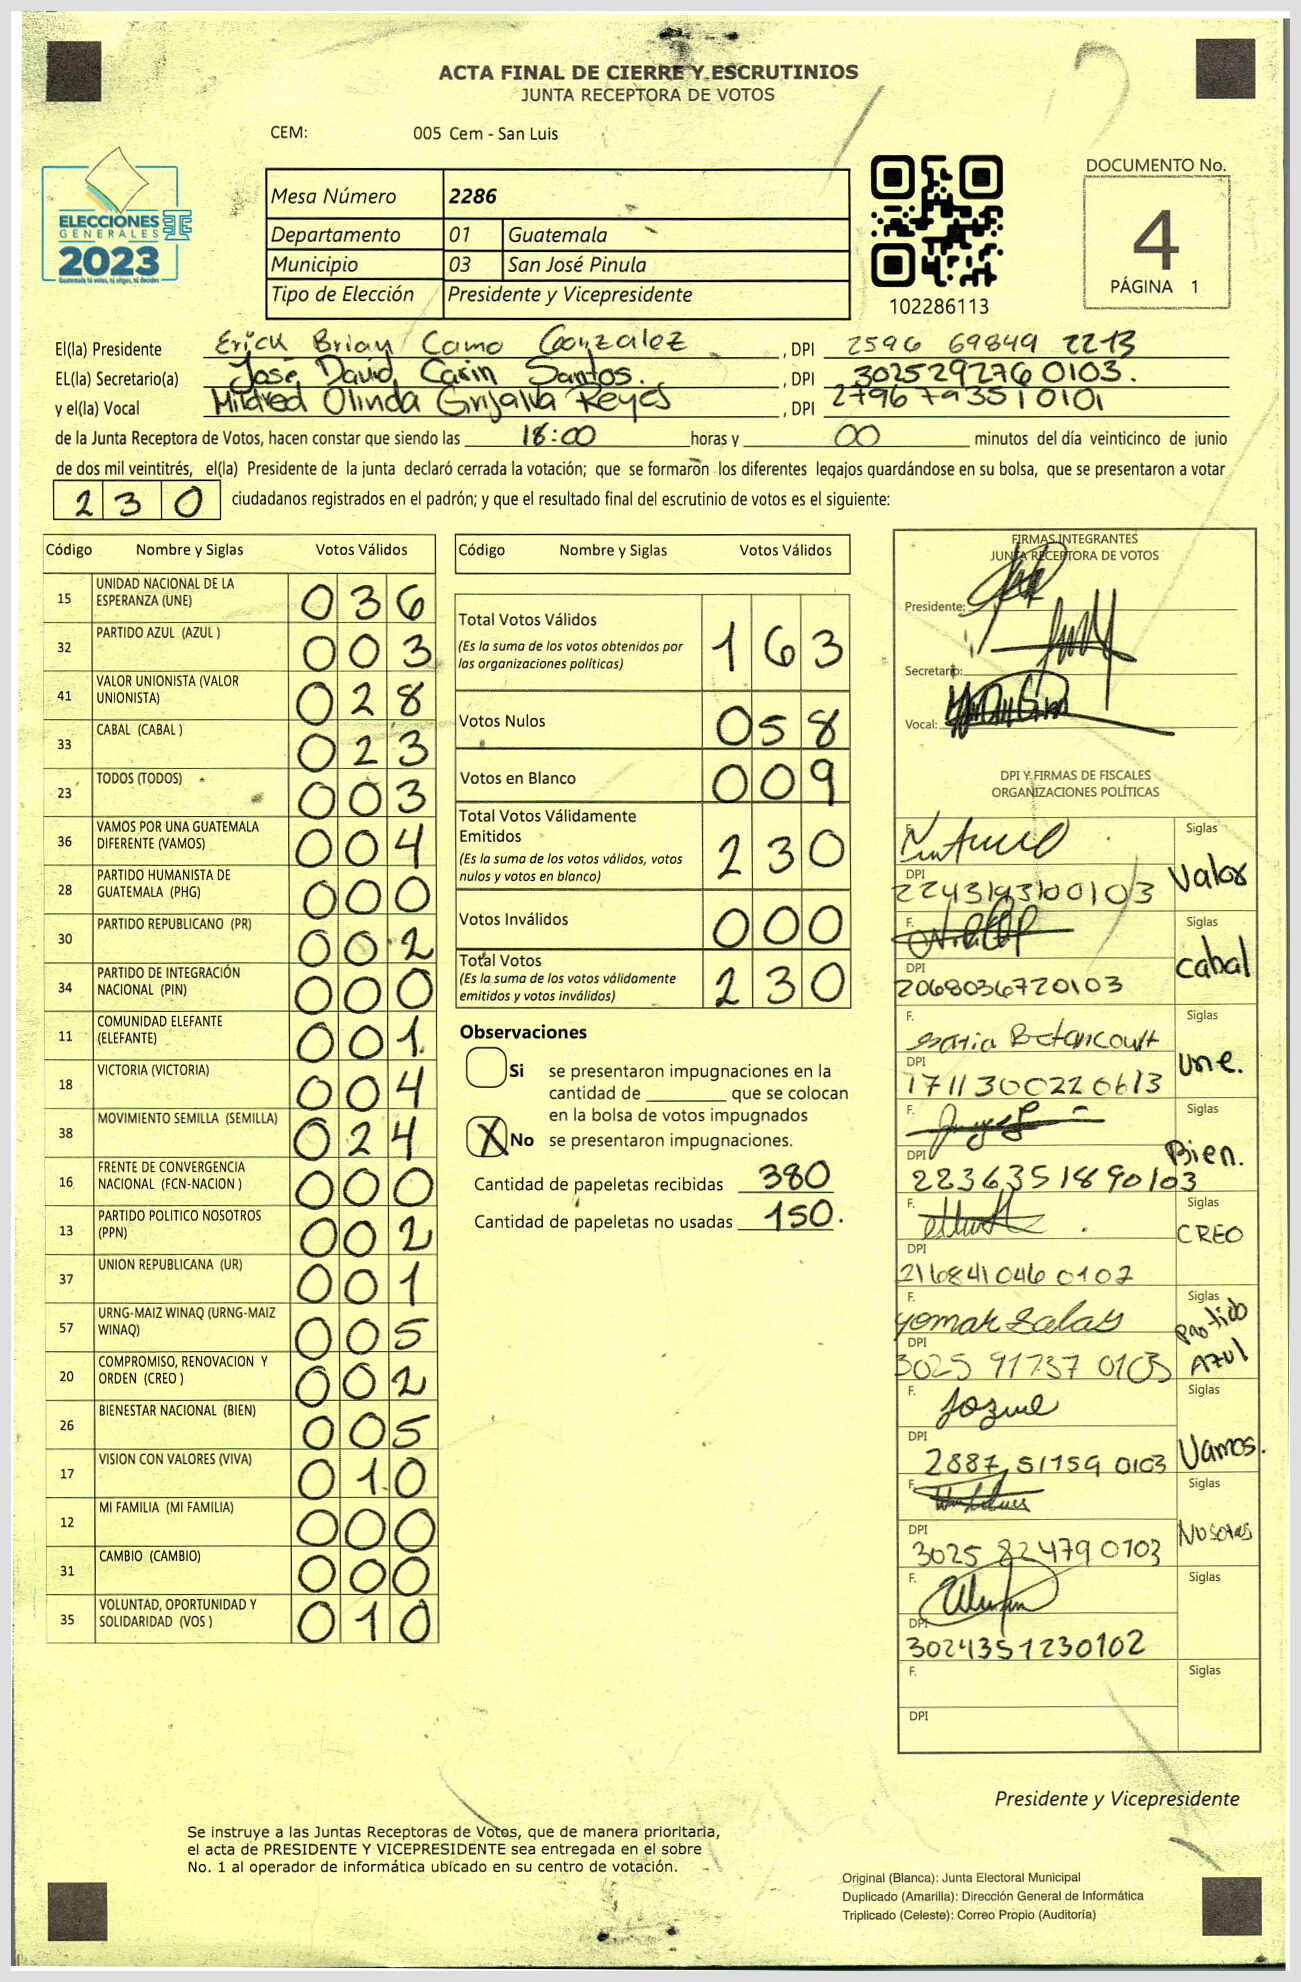 ACTA FINAL DE CIERRE Y ESCRUTINIOS
JUNTA RECEPTORA DE VOTOS
CEM: 005 Cem - San Luis
ELECCIONES
GENERALES
2023
Guatemala tú votas, tú eliges, tú decides
Mesa Número 2286
Departamento 01 Guatemala
Municipio 03 San José Pinula
Tipo de Elección Presidente y Vicepresidente
102286113
DOCUMENTO No.
4
PÁGINA 1
El(la) Presidente Erick Brian Camo Gonzalez , DPI 2596 69849 2213
EL(la) Secretario(a) José David Carin Santos. , DPI 3025292760103.
y el(la) Vocal Mildred Olinda Grijalva Reyes , DPI 2796793510101
de la Junta Receptora de Votos, hacen constar que siendo las 18:00 horas y 00 minutos del día veinticinco de junio
de dos mil veintitrés, el(la) Presidente de la junta declaró cerrada la votación; que se formaron los diferentes legajos guardándose en su bolsa, que se presentaron a votar
230 ciudadanos registrados en el padrón; y que el resultado final del escrutinio de votos es el siguiente:
Código Nombre y Siglas Votos Válidos
15 UNIDAD NACIONAL DE LA ESPERANZA (UNE) 036
32 PARTIDO AZUL (AZUL ) 003
41 VALOR UNIONISTA (VALOR UNIONISTA) 028
33 CABAL (CABAL ) 023
23 TODOS (TODOS) 003
36 VAMOS POR UNA GUATEMALA DIFERENTE (VAMOS) 004
28 PARTIDO HUMANISTA DE GUATEMALA (PHG) 000
30 PARTIDO REPUBLICANO (PR) 002
34 PARTIDO DE INTEGRACIÓN NACIONAL (PIN) 000
11 COMUNIDAD ELEFANTE (ELEFANTE) 001
18 VICTORIA (VICTORIA) 004
38 MOVIMIENTO SEMILLA (SEMILLA) 024
16 FRENTE DE CONVERGENCIA NACIONAL (FCN-NACION ) 000
13 PARTIDO POLITICO NOSOTROS (PPN) 002
37 UNION REPUBLICANA (UR) 001
57 URNG-MAIZ WINAQ (URNG-MAIZ WINAQ) 005
20 COMPROMISO, RENOVACION Y ORDEN (CREO ) 002
26 BIENESTAR NACIONAL (BIEN) 005
17 VISION CON VALORES (VIVA) 010
12 MI FAMILIA (MI FAMILIA) 000
31 CAMBIO (CAMBIO) 000
35 VOLUNTAD, OPORTUNIDAD Y SOLIDARIDAD (VOS ) 010
Código Nombre y Siglas Votos Válidos
Total Votos Válidos 163
(Es la suma de los votos obtenidos por
las organizaciones políticas)
Votos Nulos 058
Votos en Blanco 009
Total Votos Válidamente
Emitidos 230
(Es la suma de los votos válidos, votos
nulos y votos en blanco)
Votos Inválidos 000
Total Votos 230
(Es la suma de los votos válidamente
emitidos y votos inválidos)
Observaciones
Si se presentaron impugnaciones en la
cantidad de que se colocan
en la bolsa de votos impugnados
X No se presentaron impugnaciones.
Cantidad de papeletas recibidas 380
Cantidad de papeletas no usadas 150.
FIRMAS INTEGRANTES
JUNTA RECEPTORA DE VOTOS
Presidente:
Secretario:
Vocal:
DPI Y FIRMAS DE FISCALES
ORGANIZACIONES POLÍTICAS
F. Siglas Valor
DPI 2243193100103
F. Siglas cabal
DPI 2068036720103
F. Betancourt Siglas une.
DPI 1711300220613
F. Siglas Bien.
DPI 2236351890103
F. Siglas CREO
DPI 2168410460102
F. Yomar Salas Siglas Partido Azul
DPI 3025 91737 0103
F. Siglas Vamos.
DPI 2887 51159 0103
F. Siglas Nosotros
DPI 3025 82479 0103
F. Siglas
DPI 3024351230102
F. Siglas
DPI
Presidente y Vicepresidente
Se instruye a las Juntas Receptoras de Votos, que de manera prioritaria,
el acta de PRESIDENTE Y VICEPRESIDENTE sea entregada en el sobre
No. 1 al operador de informática ubicado en su centro de votación.
Original (Blanca): Junta Electoral Municipal
Duplicado (Amarilla): Dirección General de Informática
Triplicado (Celeste): Correo Propio (Auditoría)